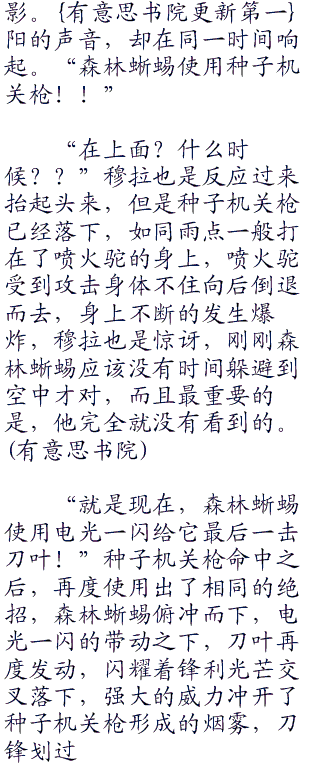 影。{有意思书院更新第一}
阳的声音，却在同一时间响
起。“森林蜥蜴使用种子机
关枪！！”
“在上面？什么时
候？？”穆拉也是反应过来
抬起头来，但是种子机关枪
已经落下，如同雨点一般打
在了喷火驼的身上，喷火驼
受到攻击身体不住向后倒退
而去，身上不断的发生爆
炸，穆拉也是惊讶，刚刚森
林蜥蜴应该没有时间躲避到
空中才对，而且最重要的
是，他完全就没有看到的。
(有意思书院)
“就是现在，森林蜥蜴
使用电光一闪给它最后一击
刀叶！”种子机关枪命中之
后，再度使用出了相同的绝
招，森林蜥蜴俯冲而下，电
光一闪的带动之下，刀叶再
度发动，闪耀着锋利光芒交
叉落下，强大的威力冲开了
种子机关枪形成的烟雾，刀
锋划过